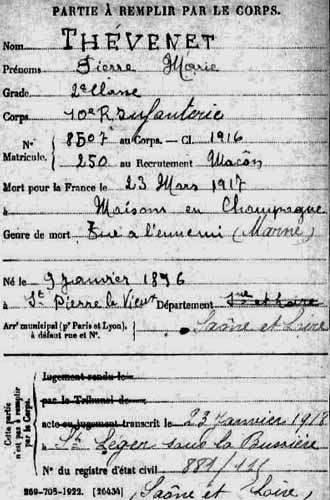 PARTIE À REMPLIR PAR LE CORPS.
Nom THÉVENET
Prénoms Pierre Marie
Grade 2e Classe
Corps 10e R. Infanterie
N° Matricule. 8507 au Corps. — Cl. 1916
250 au Recrutement Macôn
Mort pour la France le 23 Mars 1917
à Maisons en Champagne
Genre de mort Tué à l'ennemi (Marne)
Né le 9 janvier 1896
à St Pierre le Vieux Département
Arrt municipal (pr Paris et Lyon), à défaut rue et N°. Saône et Loire
Cette partie n'est pas à remplir par le Corps.
Jugement rendu le
par le Tribunal de
acte ou jugement transcrit le 23 Janvier 1918
à St Léger sous la Bussière
N° du registre d'état civil
269-708-1922. [26434] (Saône et Loire)